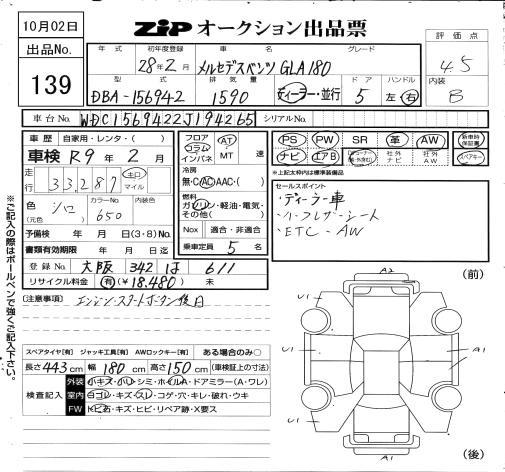 10月02日
出品No.
139
ZiP オークション出品票
年式 初年度登録 車名 グレード
28年2月 メルセデスベンツ GLA180
型式 排気量 ドア ハンドル
DBA-156942 1590 ディーラー・並行 5 左・右
評価点
4.5
内装
B
車台No. WDC1569422J194265 シリアルNo.
車歴 自家用・レンタ・( )
車検 R9年2月
走行 33,287 キロ マイル
色(元色) シロ カラーNo. 650 内装色
予備検 年 月 日(3・8)No.
書類有効期限 年 月 日迄
登録No. 大阪 342 は 611
リサイクル料金 有(¥18,480) 未
フロア コラム インパネ AT MT 速
冷房 無・AC・AAC・( )
燃料 ガソリン・軽油・電気・その他( )
Nox 適合・非適合
乗車定員 5 名
PS PW SR 革 AW 新車時保証書
ナビ エアB 社外ナビ 社外AW スペアキー
※上記太枠内は標準装備品
セールスポイント
・ディーラー車
・ハーフレザーシート
・ETC・AW
(注意事項) エンジンスタートボタン後付
※ご記入の際はボールペンで強くご記入下さい。
スペアタイヤ[有] ジャッキ工具[有] AWロックキー[有] ある場合のみ○
長さ443cm 幅180cm 高さ150cm (車検証上の寸法)
検査記入
外装 小キズ・ハリ・シミ・ホイルA・ドアミラー(A・ワレ)
室内 ヨゴレ・キズ・スレ・コゲ・穴・キレ・破れ・ウキ
FW トビ石・キズ・ヒビ・リペア跡・X要ス
(前)
A2
U1 A1
U1 U1
U1 A1
A1
(後)